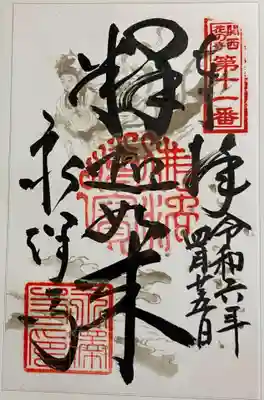 関西
花の寺
第十一番
奉拝
令和六年
四月廿五日
釋迦如来
永澤寺